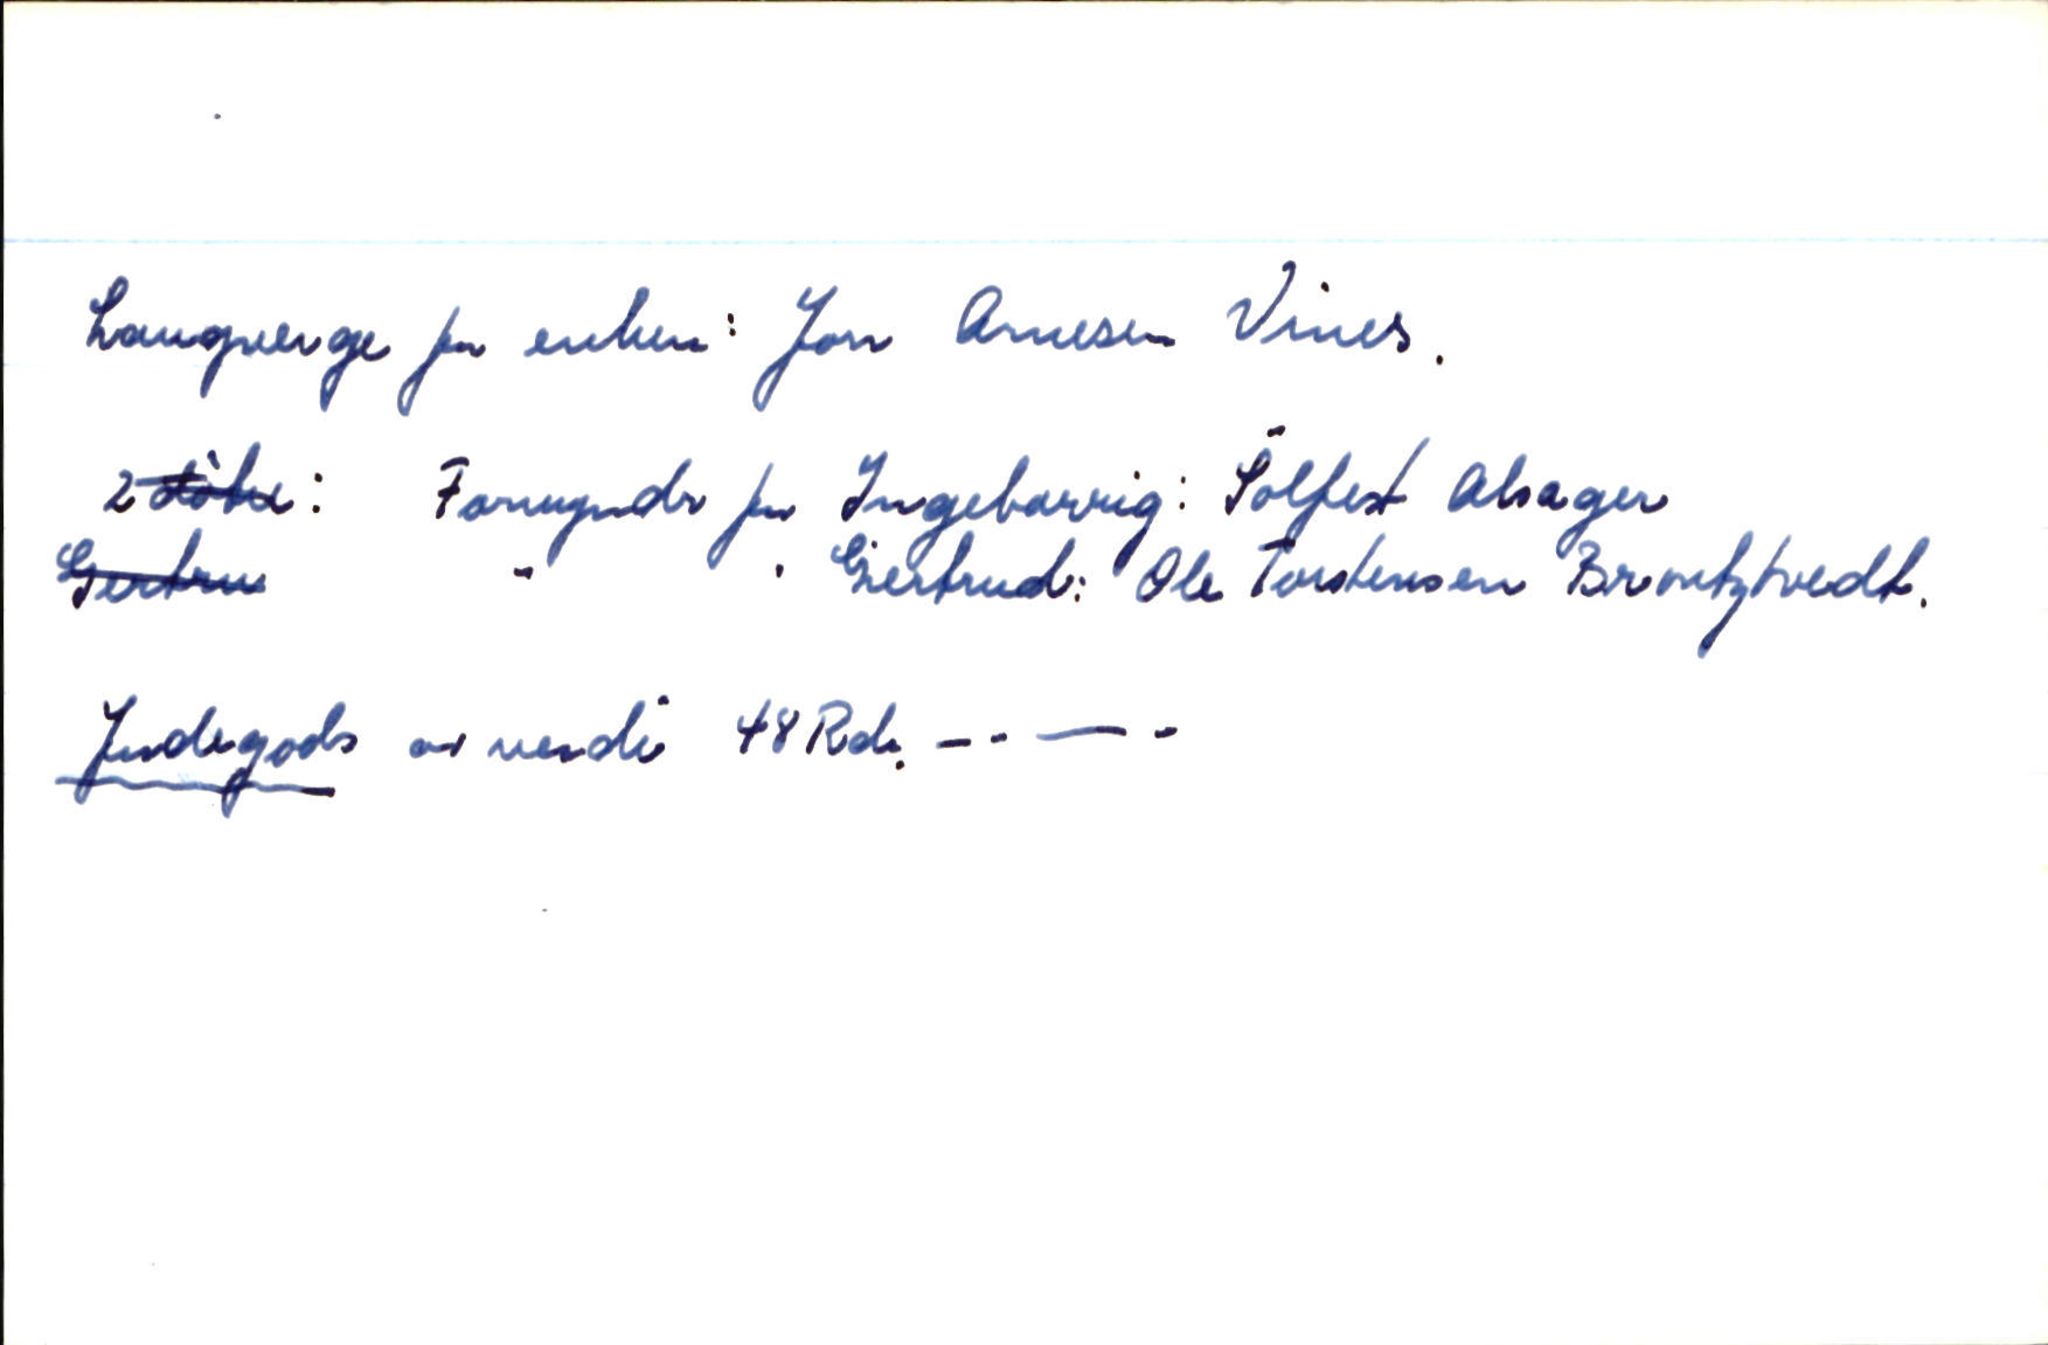 Laugverge for enken: Jon Arnesen Vines.
2 döttre: Formyndr for Ingeborrig: Sölfest Alsager
Gertru " " Giertrud: Ole Torstensen Brontztvedt.
Jordegods av verdi 48 Rd. -- — -